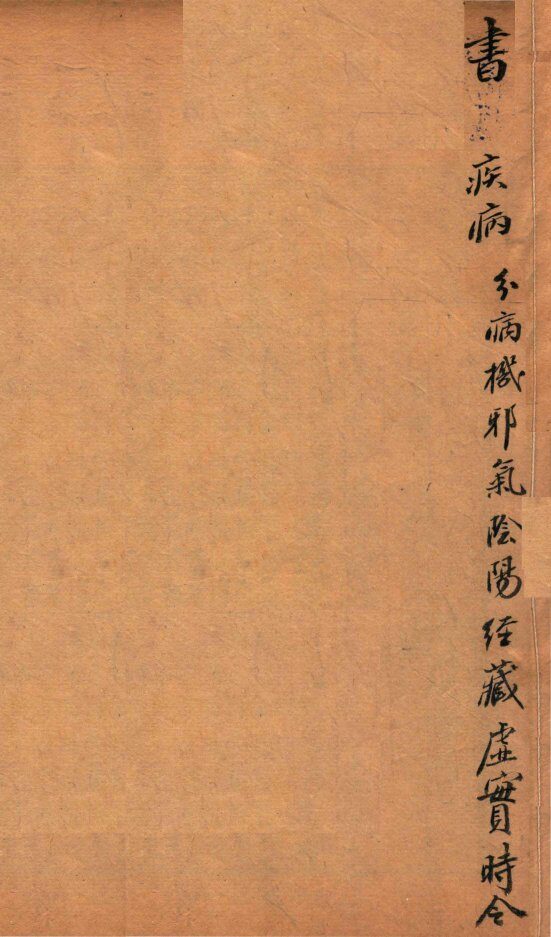 書 疾病 分病機邪氣陰陽经藏虛實時令